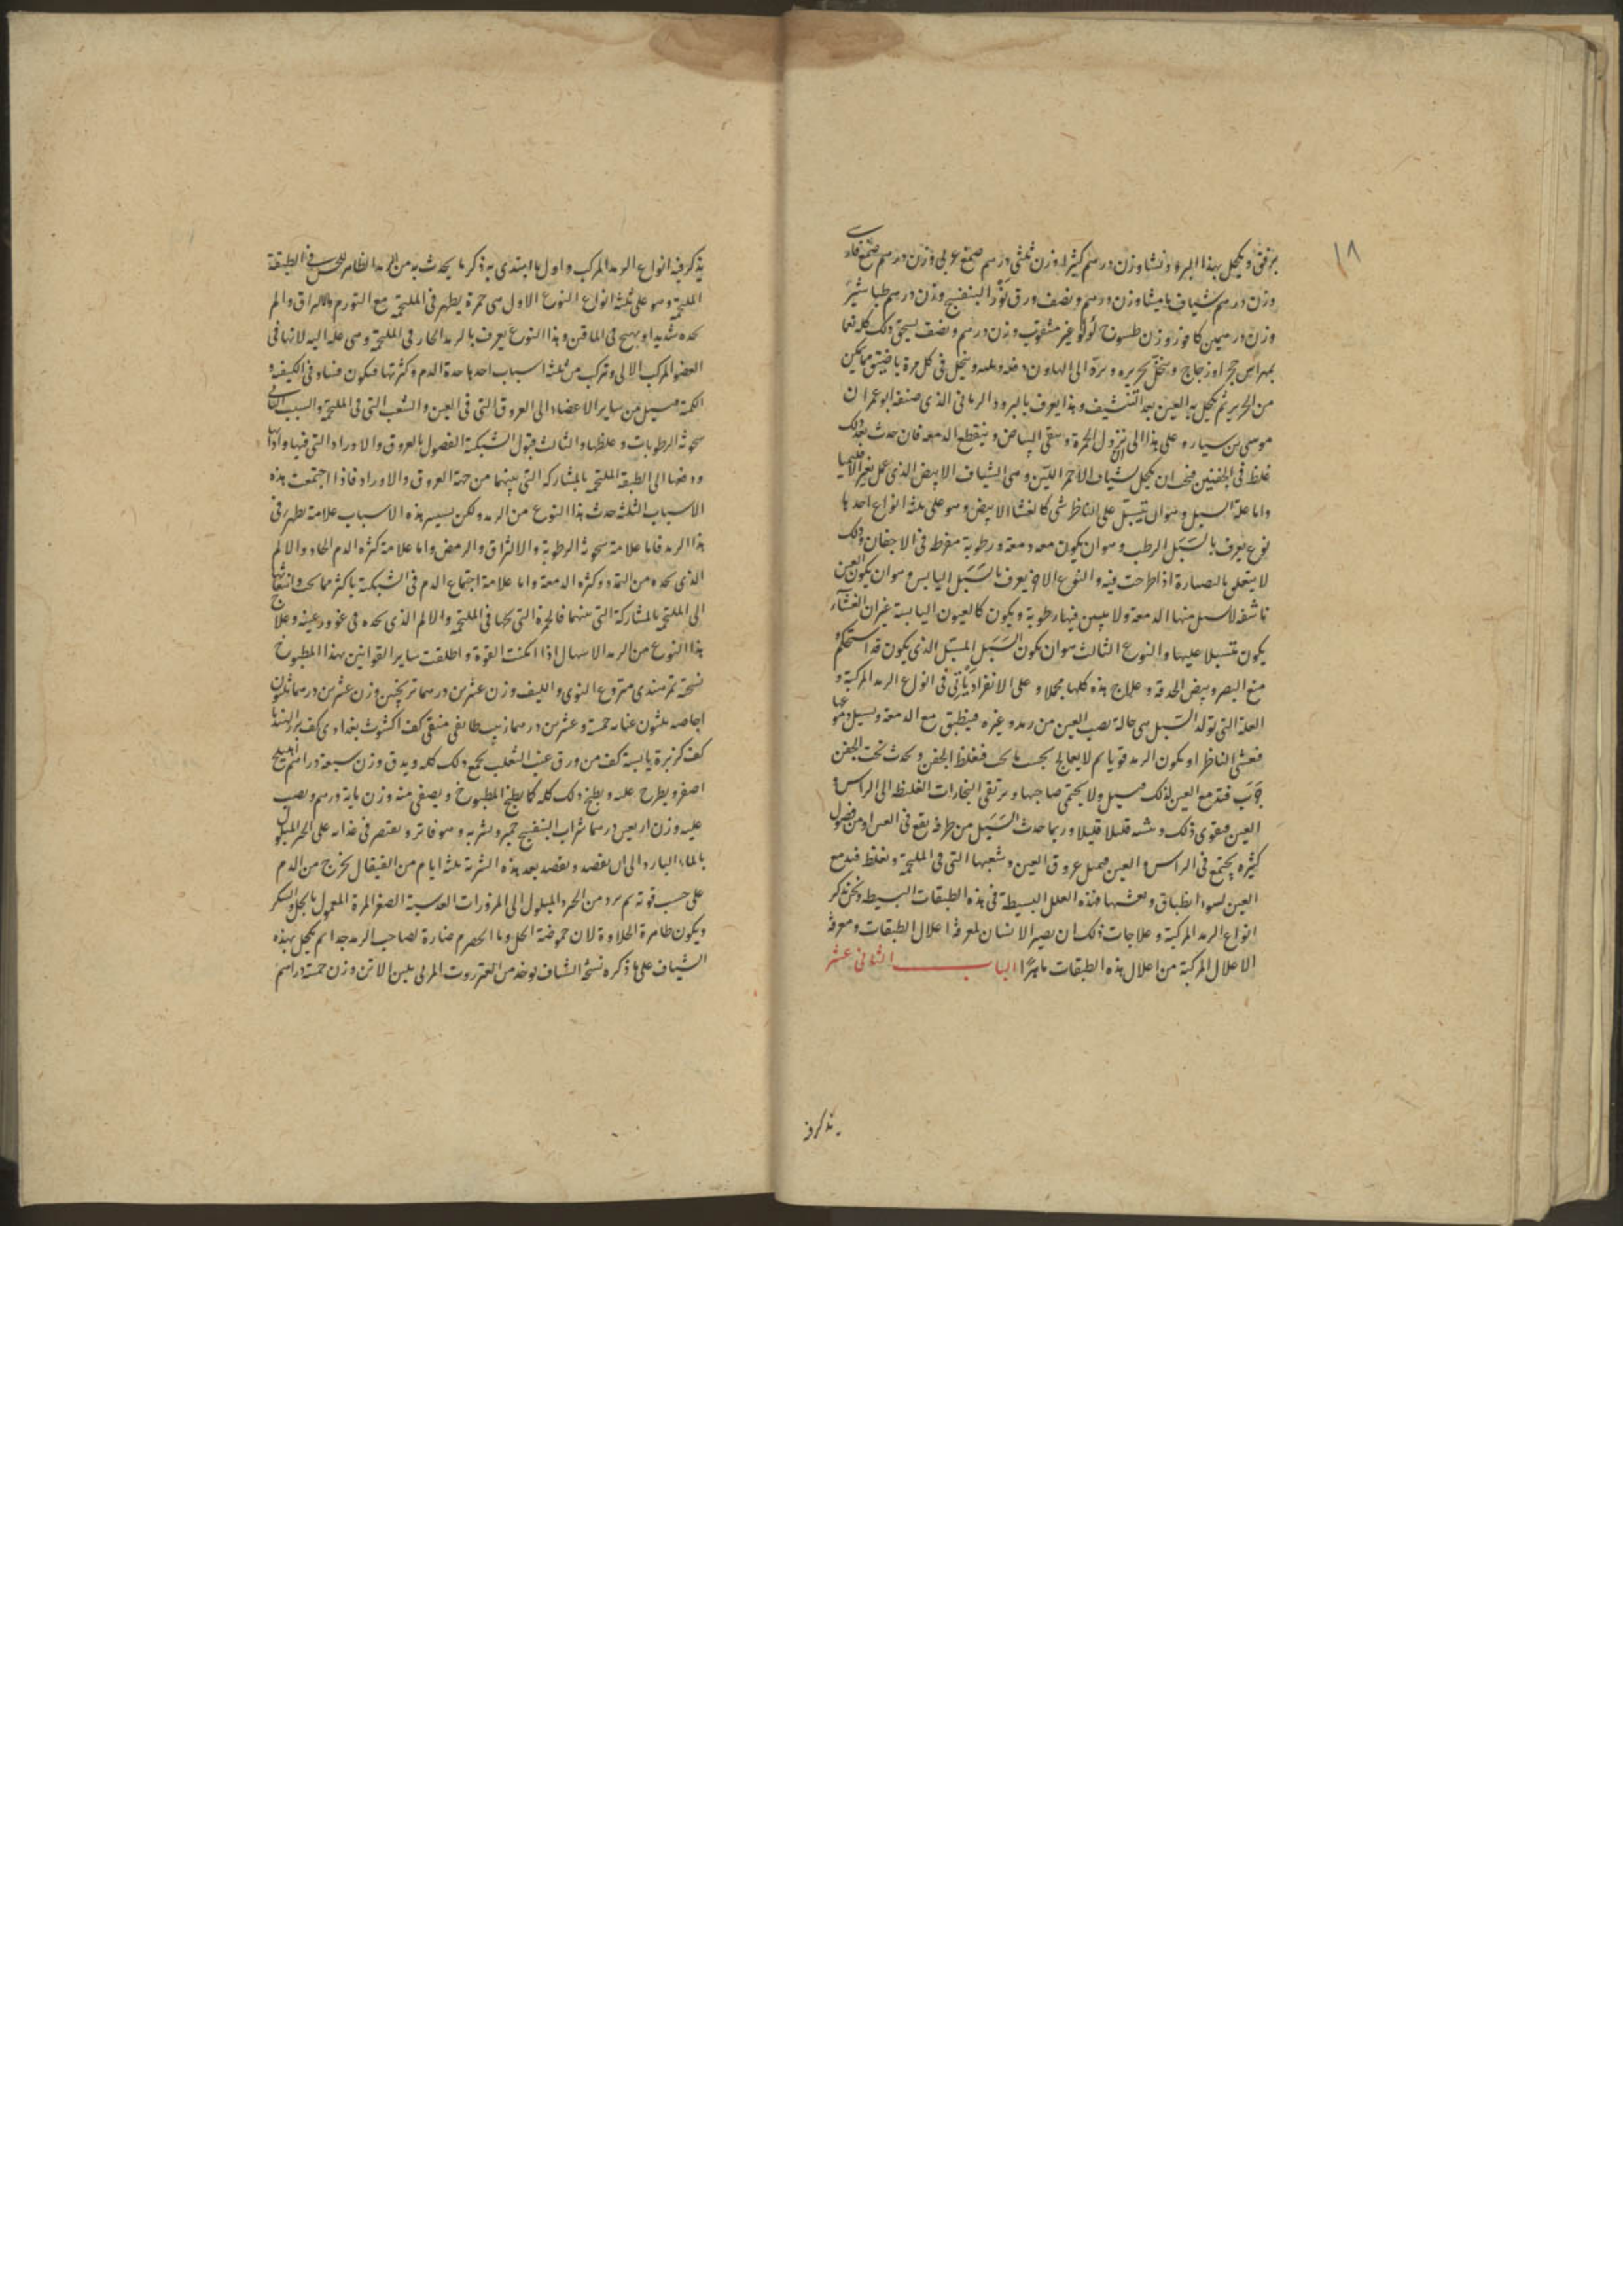 ١٨
برفق ويكحل بهذا البرود نشا وزن درهم كثيرا وزن ثلثي درهم صمغ عربي وزن درهم صمغ فارسي
وزن درهم شياف ماميثا وزن درهم ونصف ورق نور البنفسج وزن درهم طباشير
وزن درهمين كافور وزن طسوج لؤلؤ غير مثقوب وزن درهم ونصف يسحق ذلك كله نعما
بمهراس حجر او زجاج وينخل بحريرة ويرد الى الهاون دفعة وينخل في كل مرة باضيق ما يمكن
من الحرير ثم يكحل به العين بعد التنشيف وهذا يعرف بالبرود الرماني الذي صنفه ابو عمران
موسى بن سيار وعلى هذا الى ان تزول الحمرة ويبقى البياض وينقطع الدمعة فان حدث بعد ذلك
غلظ في الجفنين فيجب ان يكحل بشياف الاحمر اللين وهى الشياف الابيض الذي عمل بغير الاقليميا
واما علة السبل وهو ان يتسبل على الناظر شى كالغشا الابيض وهو على ثلثة انواع احدها
نوع يعرف بالسبل الرطب وهو ان يكون معه دمعة ورطوبة مفرطة في الاجفان وذلك
لا يتعلق بالصنارة اذا طرحت فيه والنوع الاخر يعرف بالسبل اليابس وهو ان يكون العين
ناشفة لا يسيل منها الدمعة ولا يتبين فيها رطوبة ويكون كالعيون اليابسة غير ان الغشاء
يكون متسبلا عليها والنوع الثالث هو ان يكون السبل المسبل الذي يكون قد استحكم و
منع البصر وبيض الحدقة وعلاج هذه كلها مجملا وعلى الانفراد ياتي في انواع الرمد المركبة و
العلة التي تولد السبل هي حالة تصيب العين من رمد وغيره فينطبق مع الدمعة ويسيل دموعها
فيغشي الناظر او يكون الرمد قويا ثم لا يعالج بحسب ما يجب فيغلظ الجفن ويحدث تحت الجفن
جرب فتدمع العين لذلك ويسيل ولا يحتمي صاحبها ويرتقى البخارات الغليظة الى الراس و
العين فيقوى ذلك قليلا قليلا وربما حدث السبل من طرفة يقع في العين او من فضول
كثيرة يجتمع في الراس والعين فيمتلى عروق العين وشعبها التي في الملتحمة ويغلظ فيدمع
العين لسوء انطباق فهذه العلل البسيطة في هذه الطبقات البسيطة ونحن نذكر
انواع الرمد المركبة وعلاجات ذلك ان يصير الانسان لمعرفة اعلال الطبقات ومعرفة
الاعلال المركبة من اعلال هذه الطبقات ماهرا الباب الثاني عشر
يذكر فيه
يذكر فيه انواع الرمد المركب واول ما ابتدى به ذكر ما يحدث به من الرمد الظاهر للحس في الطبقة
الملتحمة وهو على ثلثة انواع النوع الاول هى حمرة يظهر في الملتحمة مع التورم والالتزاق والم
يجده شديدا ويهيج في الماقين وهذا النوع يعرف بالرمد الحار في الملتحمة وهى علة اليه لانها في
العضو المركب الالى وتركب من ثلثة اسباب احدها حدة الدم وكثرتها فيكون فساده في الكيفية و
الكمية فيسيل من ساير الاعضاء الى العروق التي في العين والشعب التي في الملتحمة والسبب الثاني
سخونة الرطوبات وغلظها والثالث قبول الشبكية الفضول بالعروق والاوراد التي فيها واداها
ودفعها الى الطبقة الملتحمة بالمشاركة التي بينهما من جهة العروق والاوراد فاذا اجتمعت هذه
الاسباب الثلثة حدث هذا النوع من الرمد ولكن يسير هذه الاسباب علامة يظهر في
هذا الرمد فاما علامة سخونة الرطوبة والالتزاق والرمص واما علامة كثرة الدم الحاد والالم
الذي يجده من التمدد وكثرة الدمعة واما علامة اجتماع الدم في الشبكية باكثر مما يجب وانتقالها
الى الملتحمة بالمشاركة التي بينهما فالحمرة التي يجدها في الملتحمة والالم الذي يجده في غوور عينه وعلاج
هذا النوع من الرمد الاسهال اذا امكنت القوة واطلقت ساير القوانين بهذا المطبوخ
نسخته تمر هندي منزوع النوى والليف وزن عشرين درهما ترنجبين وزن عشرين درهما ثلثون
اجاصة ثلثون عنابة خمسة وعشرين درهما زبيب طايفي منقى كف اكشوث بغدادي كف بزر الهندبا
كف كزبرة يابسة كف من ورق عنب الثعلب يجمع ذلك كله ويدق وزن سبعة دراهم اهليلج
اصفر ويطرح عليه ويطبخ ذلك كله كما يطبخ المطبوخ ويصفى منه وزن ماية درهم ويصب
عليه وزن اربعين درهما شراب البنفسج خمير ويشربه وهو فاتر ويقتصر في غذائه على الخبز المبلول
بالماء البارد الى ان يفصد ويفصد بعد هذه الشربة بثلثة ايام من القيفال يخرج من الدم
على حسب قوته ثم يرد من الخبز والمبلول الى المزورات العدسية الصفر المرة المعمول بالخل والسكر
ويكون ظاهرة الحلاوة لان حموضة الخل وما الحصرم ضارة لصاحب الرمد جدا ثم يكحل بهذه
الشياف على ما ذكره نسخة الشياف يوخذ من العنزروت المربى بلبن الاتن وزن خمسة دراهم